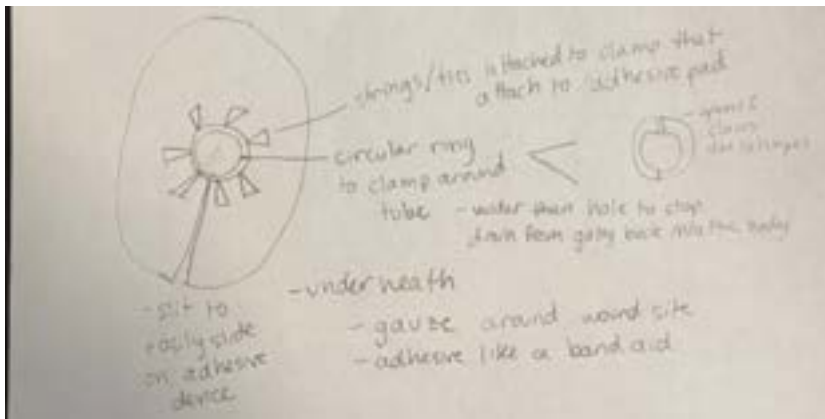 strings/ties attached to clamp that
attach to adhesive pad
circular ring
to clamp around
tube
opens &
closes
- wider than hole to stop
drain from going back into the body
- slit to
easily slide
on adhesive
device
- underneath
- gauze around wound site
- adhesive like a band aid